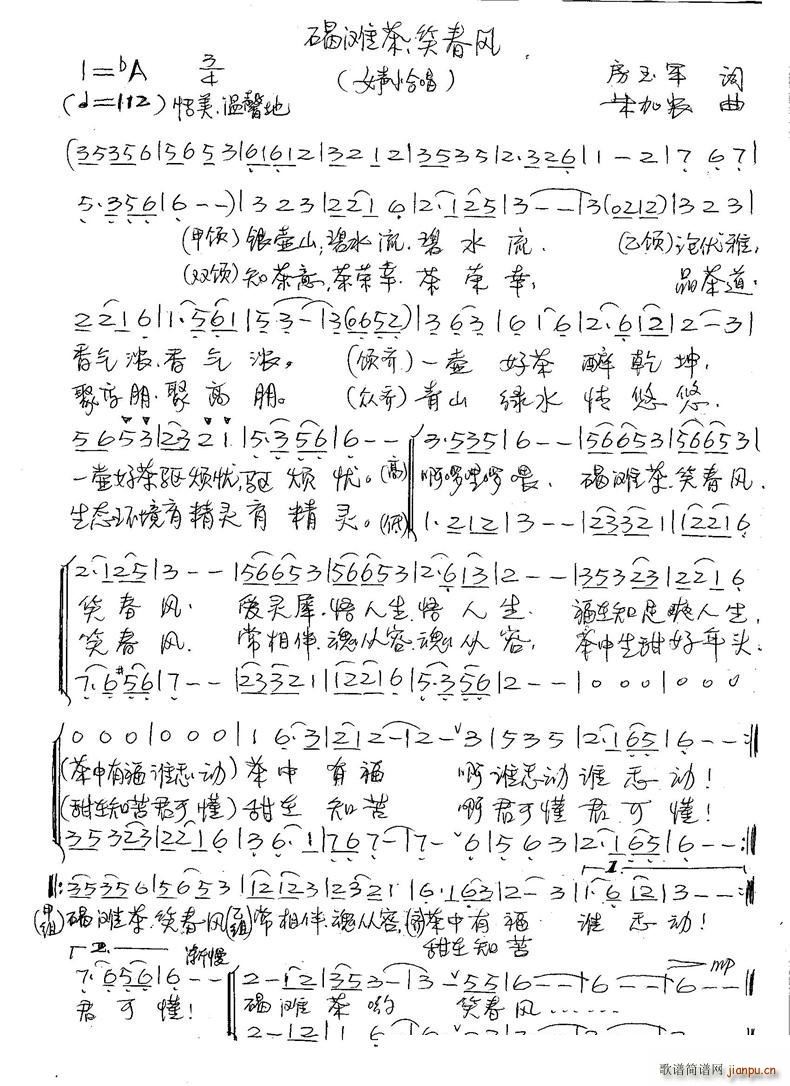 碣滩茶,笑春风
(女声小合唱)
1=bA 3/4
房玉军 词
(♩=112) 恬美、温馨地
加农 曲
(35356|5653|61612|3212|35353|2·326|1-2|767|
5·356|6--)|323|2216|2·125|3--|3(0212)|323|
(甲领)银壶山,碧水流.碧水流. (乙领)泡优雅,
(双领)知茶意,茶荣幸.茶荣幸, 品茶道.
2216|1·561|5·3-|3(06652)|363|616|2·612|2-3|
香气浓.香气浓。 (领齐)一壶好茶醉乾坤,
聚高朋.聚高朋。 (众齐)青山绿水情悠悠.
5653|2321|5·356|6--|3·535|6--|566653|56653|
一壶好茶驱烦忧,驱烦忧。(高)啊啰哩啰喂. 碣滩茶.笑春风.
生态环境育精灵育精灵。(低)
1·212|3--|23321|12216
2·125|3--|56653|56653|2·613|2--|35323|2216
笑春风. 爱灵犀.悟人生.悟人生. 福在知足爽人生,
笑春风. 常相伴.魂从容.魂从容, 茶中生甜好年头.
7·6#56|7--|23321|12216|5·356|2--|000|000
000|000|16·3|212-|2-ⱽ3|535|2·165|6--:‖
(茶中有福谁忘动)茶中有福 啊谁忘动谁忘动!
(甜在知苦君可懂)甜在知苦 啊君可懂君可懂!
35323|2216|36·1|767-|7-ⱽ6|563|2·165|6--:‖
‖:35356|5653|12123|2321|6·163|2-3|1·612|3--:‖
1.
(甲组)碣滩茶.笑春风(乙组)常相伴.魂从容,(齐)茶中有福 谁忘动!
甜在知苦
2. 渐慢
mp
7·656|6--|2-12|353-|-3-ⱽ|556-|6--|6--‖
君可懂! 碣滩茶哟 笑春风……
2-12|16
歌谱简谱网
jianpu.cn